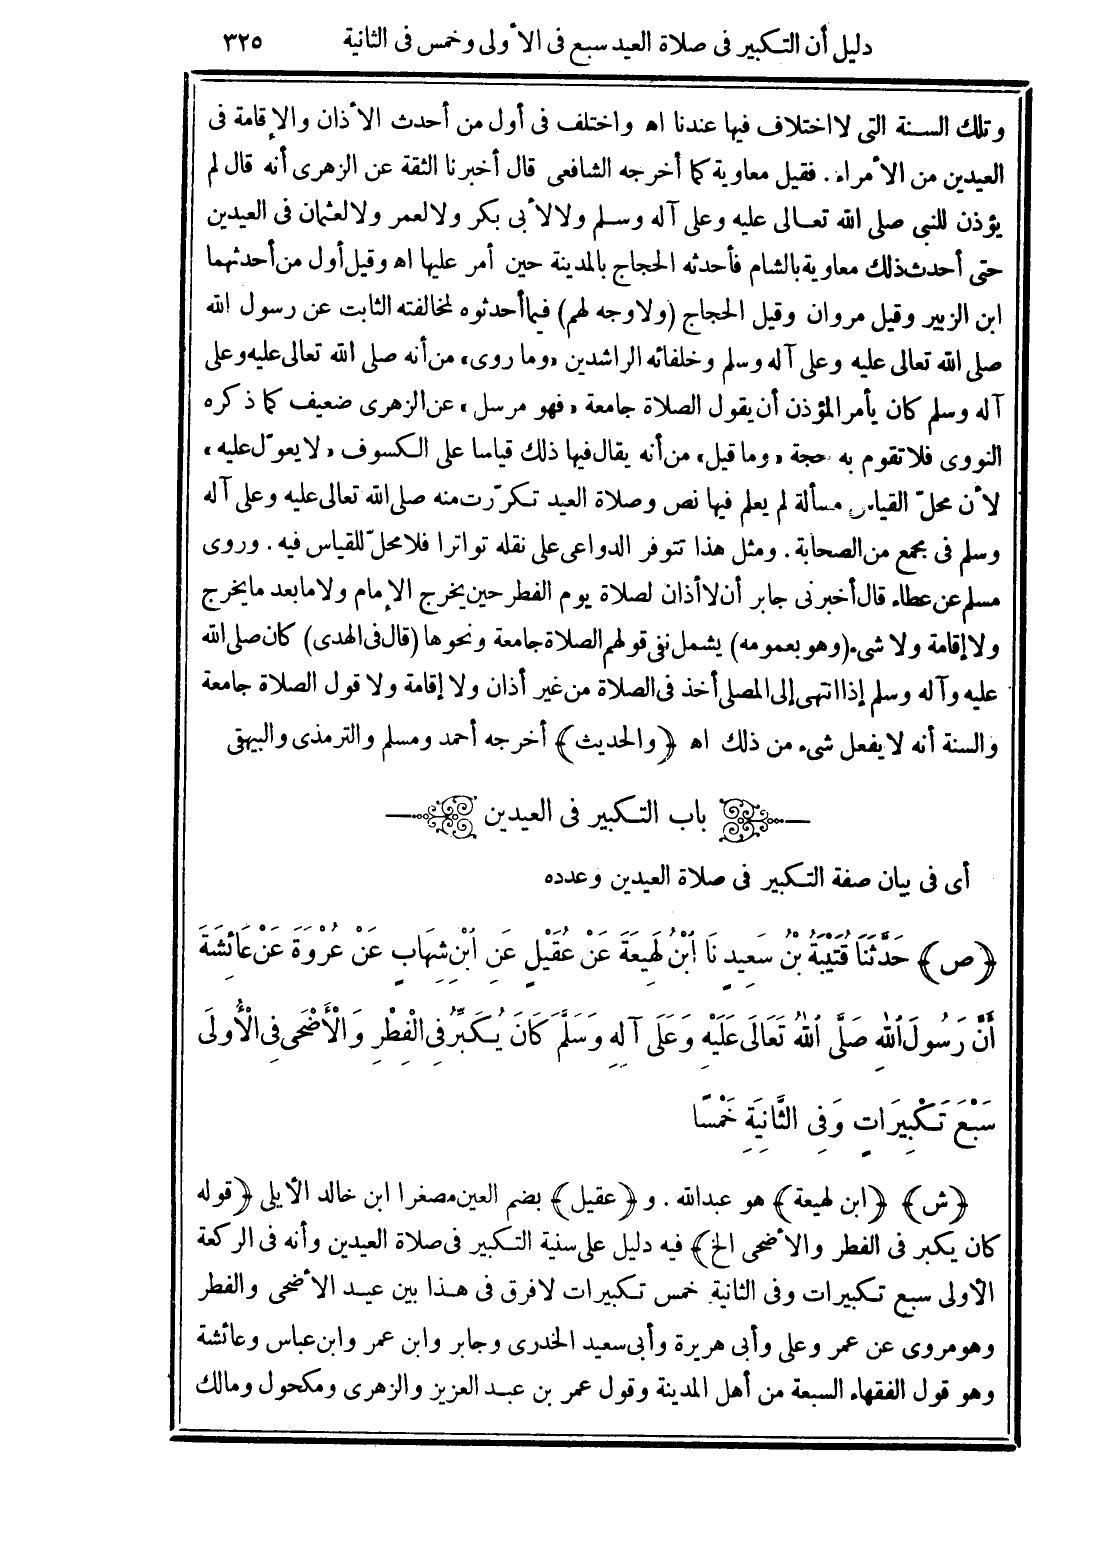 دليل أن التكبير فى صلاة العيد سبع فى الأولى وخمس فى الثانية ٣٢٥
وتلك السنة التى لا اختلاف فيها عندنا اه واختلف فى أول من أحدث الأذان والإقامة فى
العيدين من الأمراء. فقيل معاوية كما أخرجه الشافعى قال أخبرنا الثقة عن الزهرى أنه قال لم
يؤذن للنبى صلى الله تعالى عليه وعلى آله وسلم ولا لأبى بكر ولا لعمر ولا لعثمان فى العيدين
حتى أحدث ذلك معاوية بالشام فأحدثه الحجاج بالمدينة حين أمر عليها اه وقيل أول من أحدثهما
ابن الزبير وقيل مروان وقيل الحجاج (ولا وجه لهم) فيما أحدثوه لمخالفته الثابت عن رسول الله
صلى الله تعالى عليه وعلى آله وسلم وخلفائه الراشدين «وما روى» من أنه صلى الله تعالى عليه وعلى
آله وسلم كان يأمر المؤذن أن يقول الصلاة جامعة «فهو مرسل» عن الزهرى ضعيف كما ذكره
النووى فلا تقوم به حجة «وما قيل» من أنه يقال فيها ذلك قياسا على الكسوف «لا يعوّل عليه»
لأن محلّ القياس مسألة لم يعلم فيها نص وصلاة العيد تكرّرت منه صلى الله تعالى عليه وعلى آله
وسلم فى مجمع من الصحابة. ومثل هذا تتوفر الدواعى على نقله تواترا فلا محلّ للقياس فيه. وروى
مسلم عن عطاء قال أخبرنى جابر أن لا أذان لصلاة يوم الفطر حين يخرج الإمام ولا ما بعد ما يخرج
ولا إقامة ولا شىء (وهو بعمومه) يشمل نفى قولهم الصلاة جامعة ونحوها (قال فى الهدى) كان صلى الله
عليه وآله وسلم إذا انتهى إلى المصلى أخذ فى الصلاة من غير أذان ولا إقامة ولا قول الصلاة جامعة
والسنة أنه لا يفعل شىء من ذلك اه ﴿والحديث﴾ أخرجه أحمد ومسلم والترمذى والبيهقى
باب التكبير فى العيدين
أى فى بيان صفة التكبير فى صلاة العيدين وعدده
﴿ص﴾ حَدَّثَنَا قُتَيْبَةُ بْنُ سَعِيدٍ نَا ابْنُ لَهِيعَةَ عَنْ عُقَيْلٍ عَنِ ابْنِ شِهَابٍ عَنْ عُرْوَةَ عَنْ عَائِشَةَ
أَنَّ رَسُولَ اللهِ صَلَّى اللهُ تَعَالَى عَلَيْهِ وَعَلَى آلِهِ وَسَلَّمَ كَانَ يُكَبِّرُ فِى الْفِطْرِ وَالْأَضْحَى فِى الْأُولَى
سَبْعَ تَكْبِيرَاتٍ وَفِى الثَّانِيَةِ خَمْسًا
﴿ش﴾ ﴿ابن لهيعة﴾ هو عبدالله. و﴿عقيل﴾ بضم العين مصغرا ابن خالد الأيلى ﴿قوله
كان يكبر فى الفطر والأضحى الخ﴾ فيه دليل على سنية التكبير فى صلاة العيدين وأنه فى الركعة
الأولى سبع تكبيرات وفى الثانية خمس تكبيرات لا فرق فى هذا بين عيد الأضحى والفطر
وهو مروى عن عمر وعلى وأبى هريرة وأبى سعيد الخدرى وجابر وابن عمر وابن عباس وعائشة
وهو قول الفقهاء السبعة من أهل المدينة وقول عمر بن عبد العزيز والزهرى ومكحول ومالك